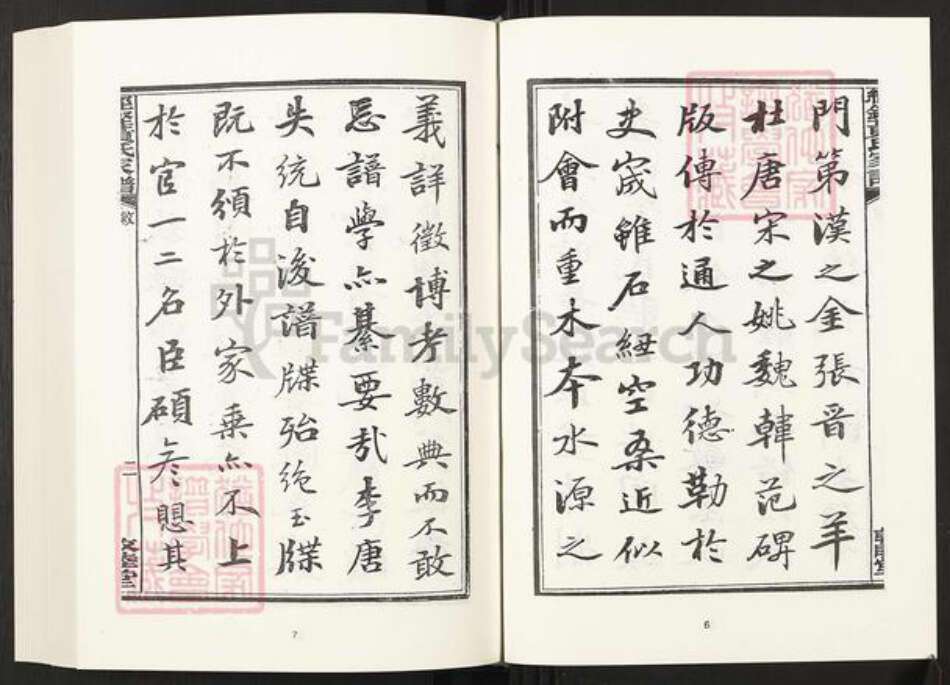 門第漢之金張晉之羊
杜唐宋之姚魏韓范碑
版傳於通人功德勒於
史宬雖石紐空桑近似
附會而重木本水源之
6
義詳徵博考數典而不敢
忘譜學亦綦要哉李唐
失統自後譜牒殆絶玉牒
既不頒於外家乘亦不上
於官一二名臣碩彦愳其
氏家譜
敘
二
7
FamilySearch